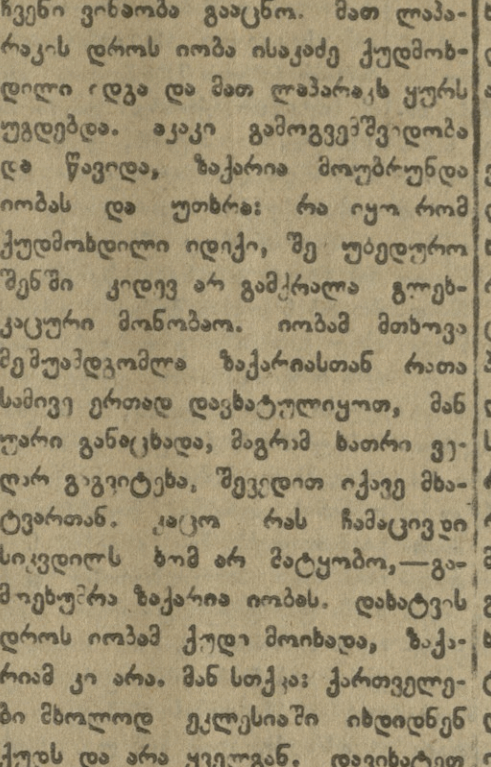 ჩვენი ვინაობა გააცნო. მათ ლაპა-
რაკის დროს იობა ისაკაძე ქუდმოხ-
დილი იდგა და მათ ლაპარაკს ყურს
უგდებდა. აკაკი გამოგვემშვიდობა
და წავიდა, ზაქარია მოუბრუნდა
იობას და უთხრა: რა იყო რომ
ქუდმოხდილი იდიქი, შე უბედურო
შენში კიდევ არ გამქრალა გლეხ-
კაცური მონობაო. იობამ მთხოვა
მეშუამდგომლა ზაქარიასთან რათა
სამივე ერთად დავხატულიყოთ, მან
უარი განაცხადა, მაგრამ ხათრი ვე-
ღარ გაგვიტეხა, შევედით იქავე მხა-
ტვართან. კაცო რას ჩამაცივდი
სიკვდილს ხომ არ მატყობო,—გა-
მოეხუმრა ზაქარია იობას. დახატვის
დროს იობამ ქუდი მოიხადა, ზაქა-
რიამ კი არა. მან სთქვა: ქართველე-
ბი მხოლოდ ეკლესიაში იხდიდნენ
ქუდს და არა ყველგან. დავიხატეთ